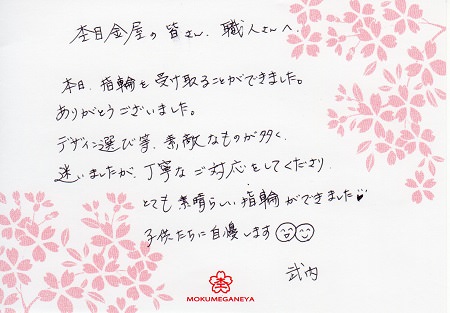 杢目金屋の皆さん、職人さんへ、
本日、指輪を受け取ることができました。
ありがとうございました。
デザイン選び等、素敵なものが多く、
迷いましたが、丁寧なご対応をしてくださり、
とても素晴らしい指輪ができました♥
子供たちに自慢します
武内
MOKUMEGANEYA